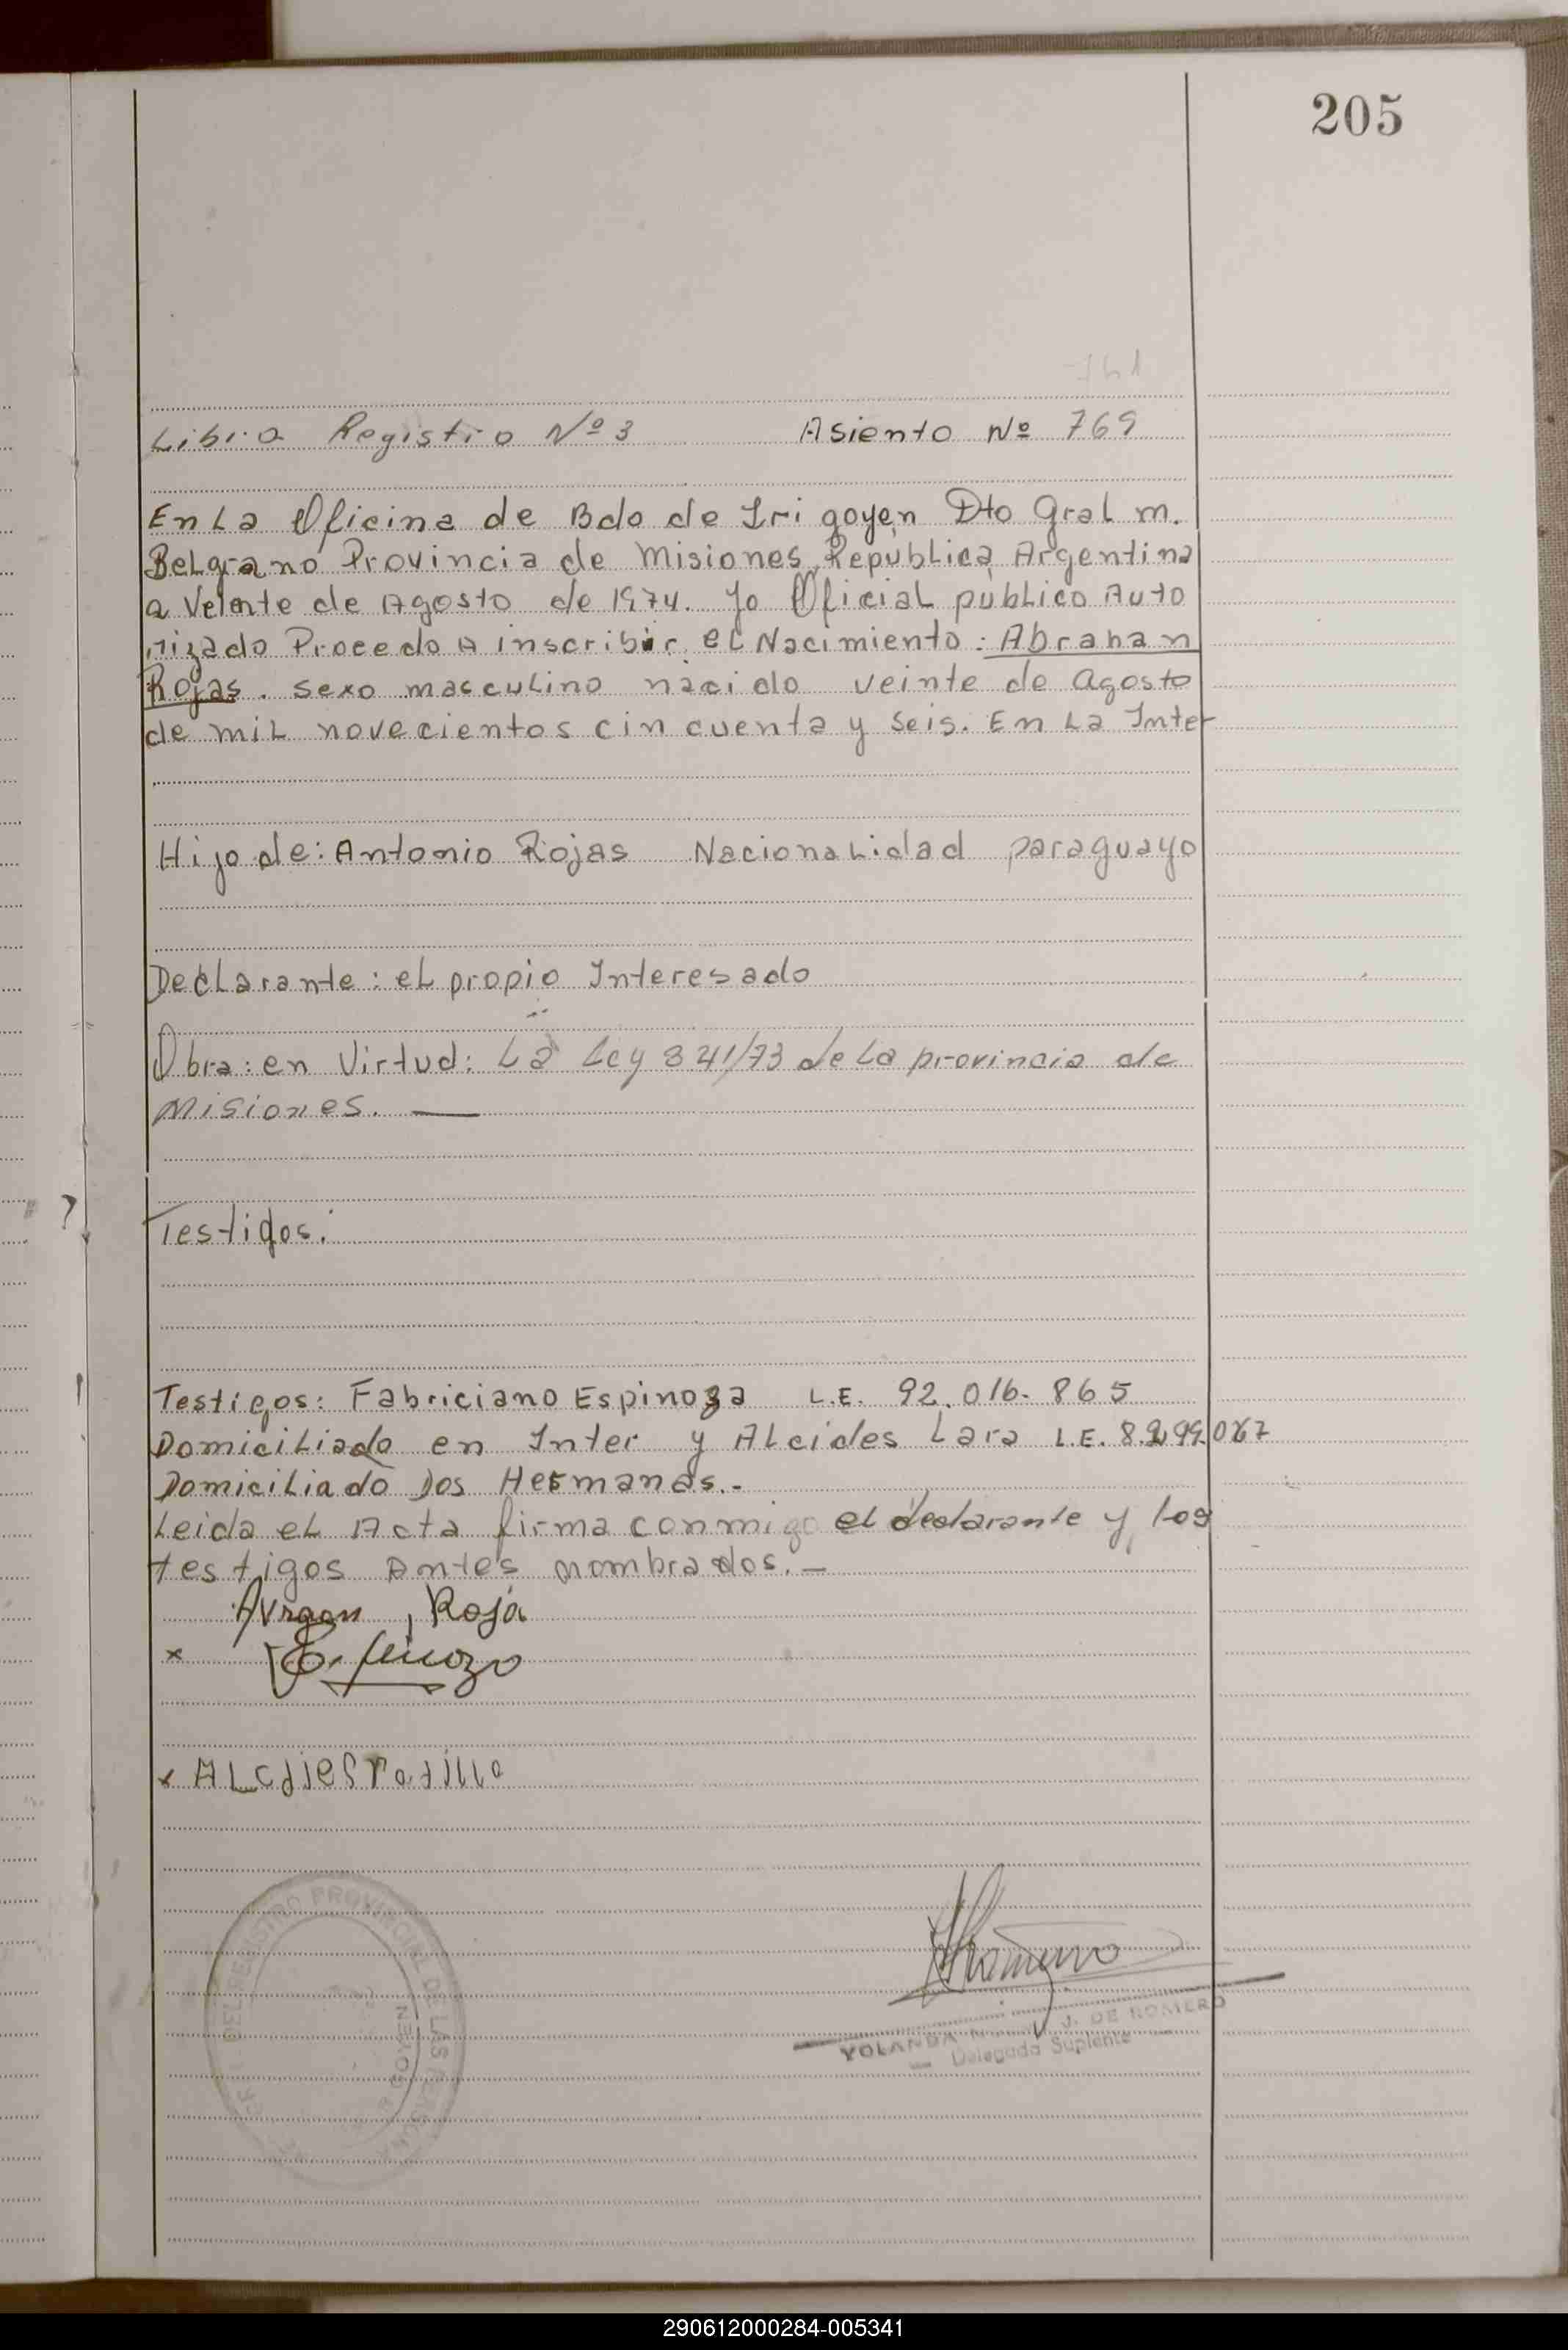 205
Libro Registro Nº 3 Asiento Nº 769
En La Oficina de Bdo de Iri goyen Dto Gral m.
Belgrano Provincia de Misiones, República Argentina
a Veinte de Agosto de 1974. Yo Oficial público Auto
rizado Procedo A inscribir el Nacimiento: Abrahan
Rojas. sexo masculino nacido veinte de Agosto
de mil novecientos cin cuenta y seis. En La Inter
Hijo de: Antonio Rojas Nacionalidad paraguayo
Declarante: el propio Interesado
Obra: en Virtud: La Ley 841/73 de La provincia de
Misiones.
Testigos:
Testigos: Fabriciano Espinoza L.E. 92.016.865
Domiciliado en Inter y Alcides Lara L.E.
Domiciliado Dos Hermanas.-
Leida el Acta firma conmigo el declarante y los
testigos Antes nombrados.-
Avraon, Roja
x Espinozo
x
REGISTRO PROVINCIAL DE LAS
YOLANDA J. DE ROMERO
Delegada Suplente
290612000284-005341